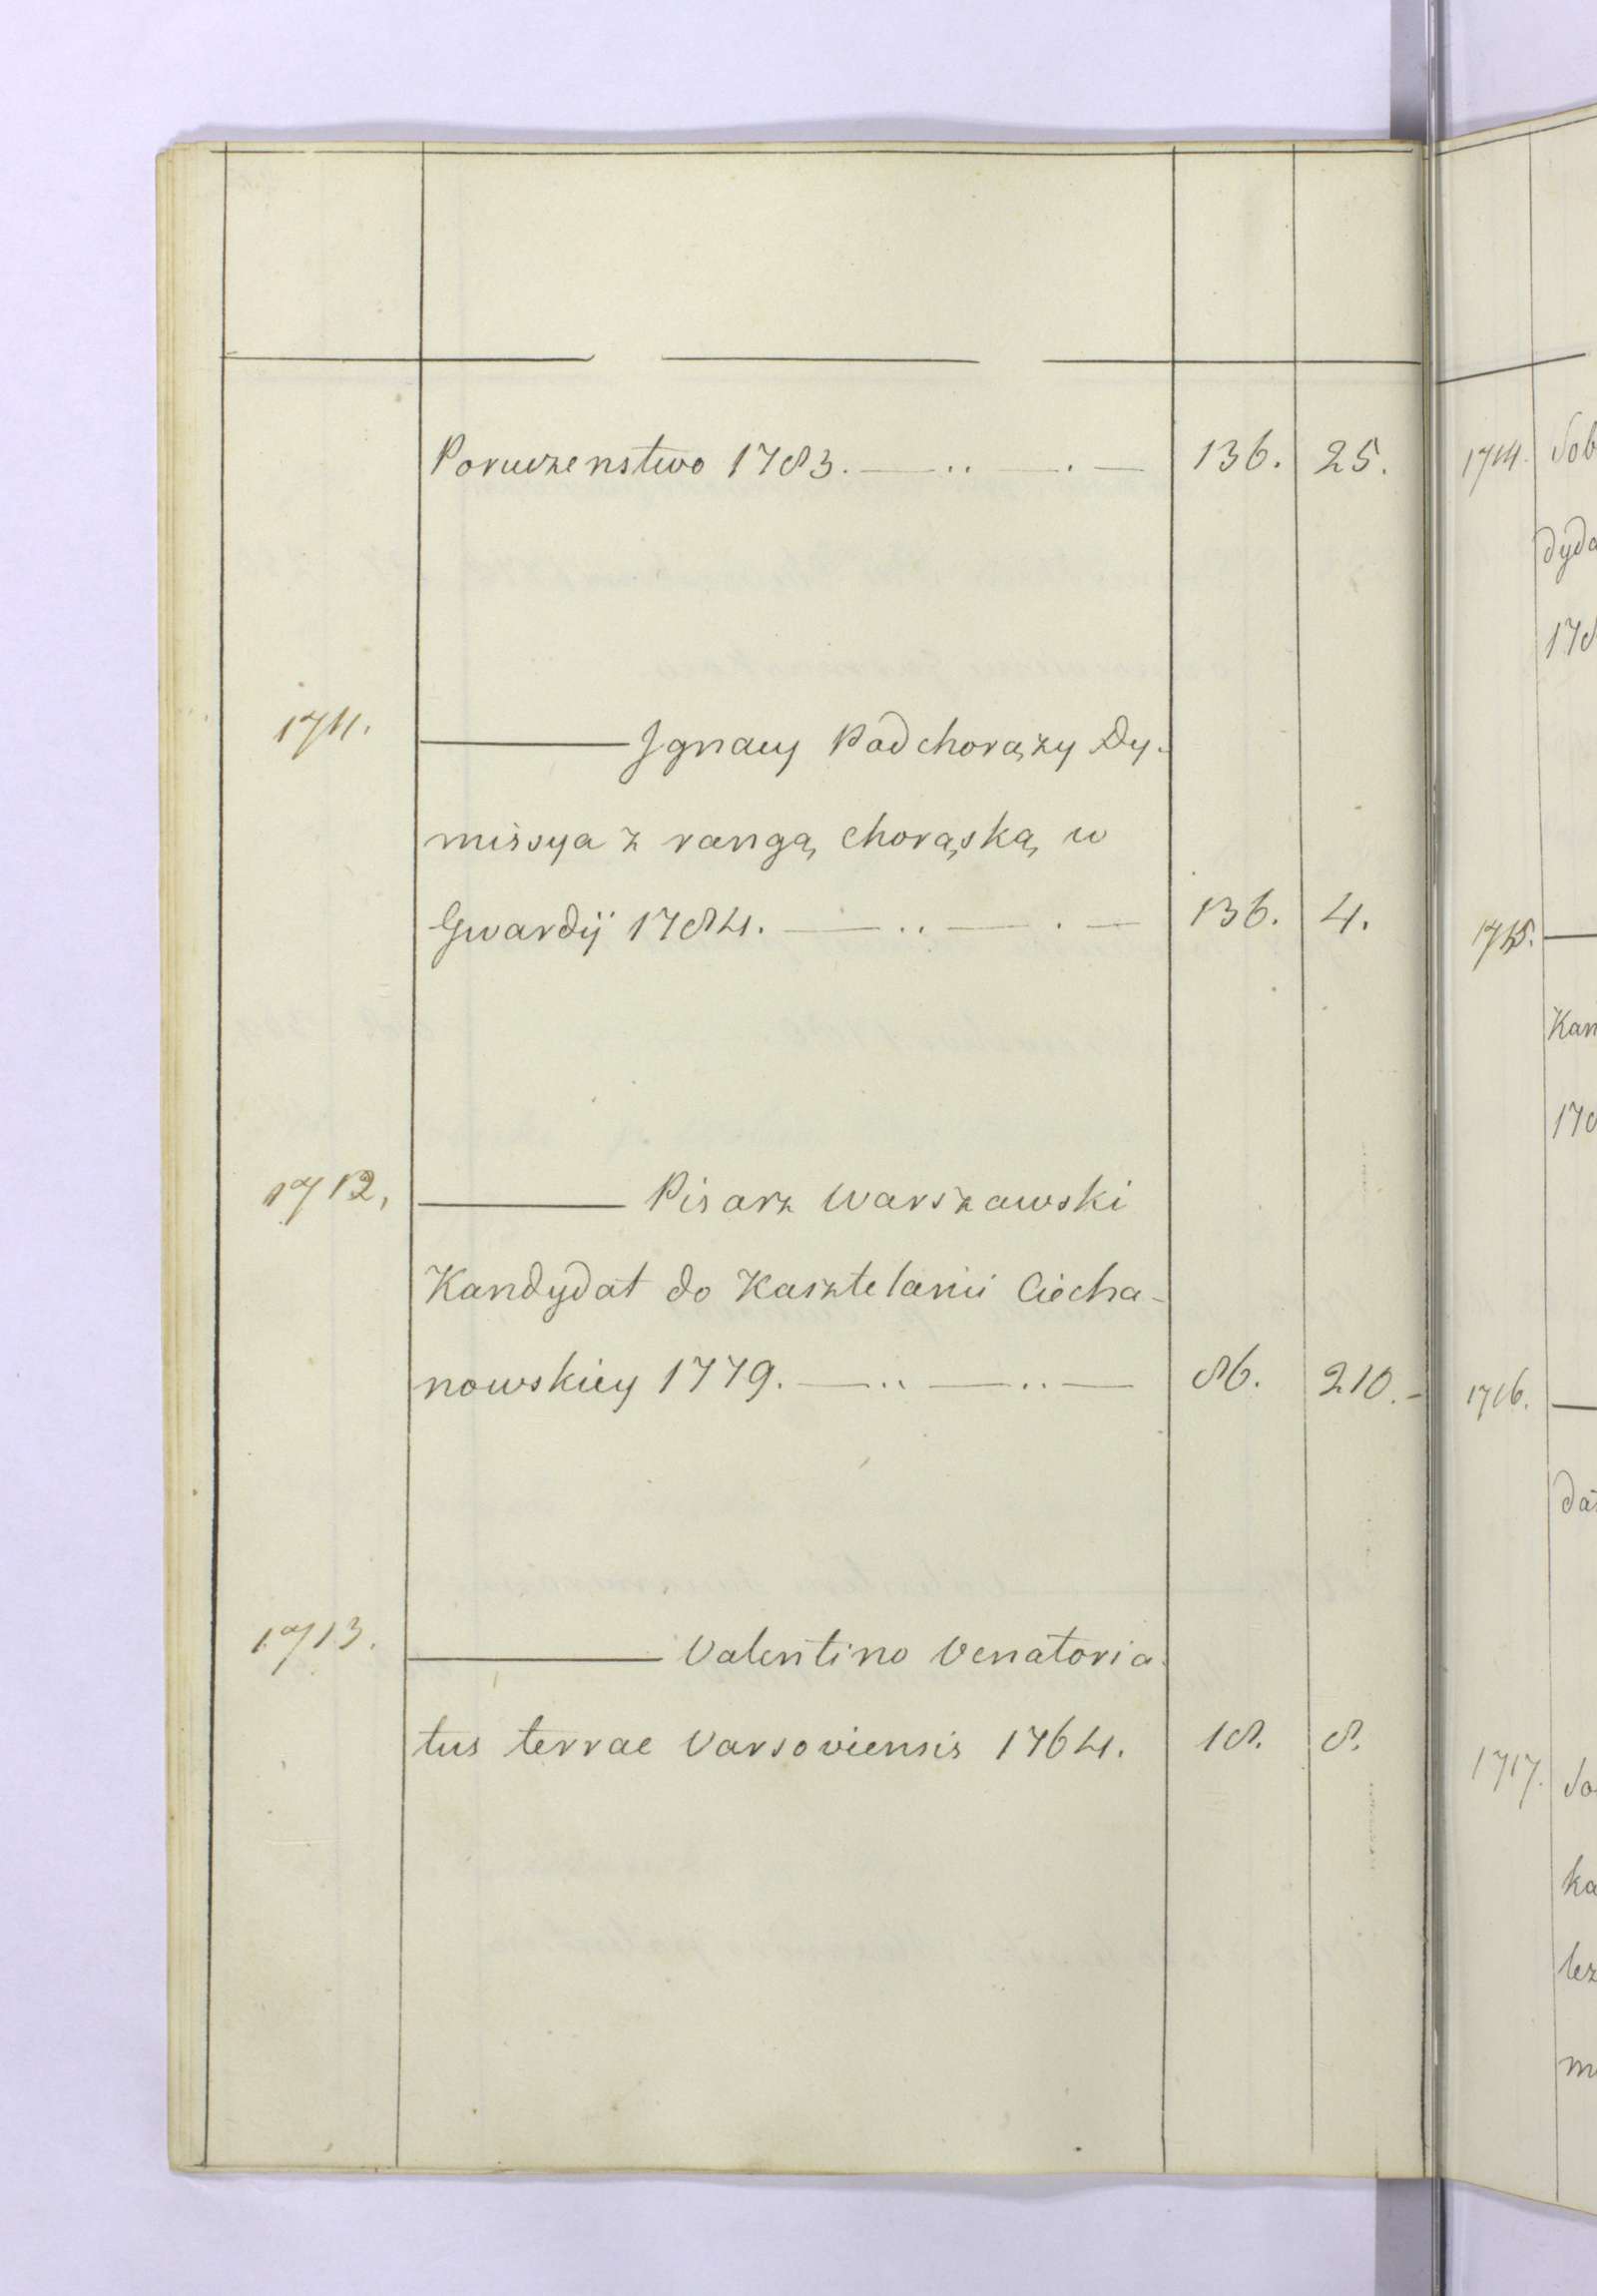 Poruczenstwo 1783. 136. 25.
1711. Ignacy Podchorąży Dy-
missya z rangą chorąską w
Gwardÿ 1784. 136. 4.
1712. Pisarz Warszawski
Kandydat do Kasztelanii Ciecha-
nowskiey 1779. 86. 210.
1713. Valentino Venatoria-
tus terrae Varsoviensis 1764. 18. 8.
1714. Sob
dyda
178
1715.
Kan
178
1716.
da
1717. So
ka
lez